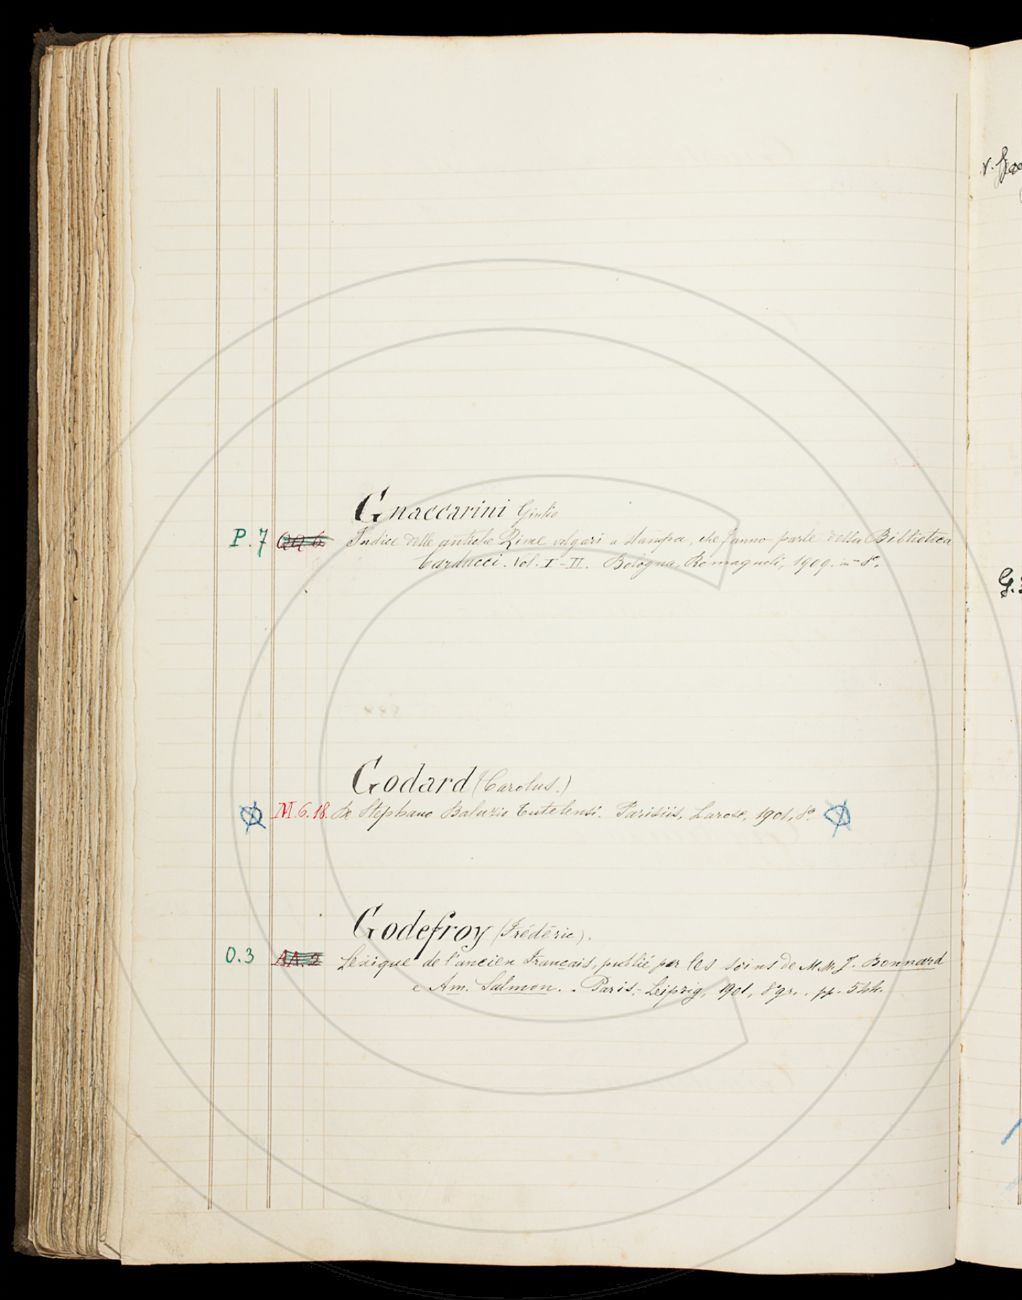 Gnaccarini Giulio
P. 7 QQ 6 Indice delle antiche Rime volgari a stampa, che fanno parte della Biblioteca
Carducci. Vol. I-II. Bologna, Romagnoli, 1909. in-8°.
Godard (Carolus.)
M. 6. 18. De Stephano Baluzio Tutelensi. Parisiis, Larose, 1901, 8°.
Godefroy (Frédéric).
O. 3 AA. 2 Lexique de l'ancien Français, publié par les soins de M. M. J. Bonnard
e Am. Salmon. - Paris-Leipzig, 1901, 8° gr. pp. 544.